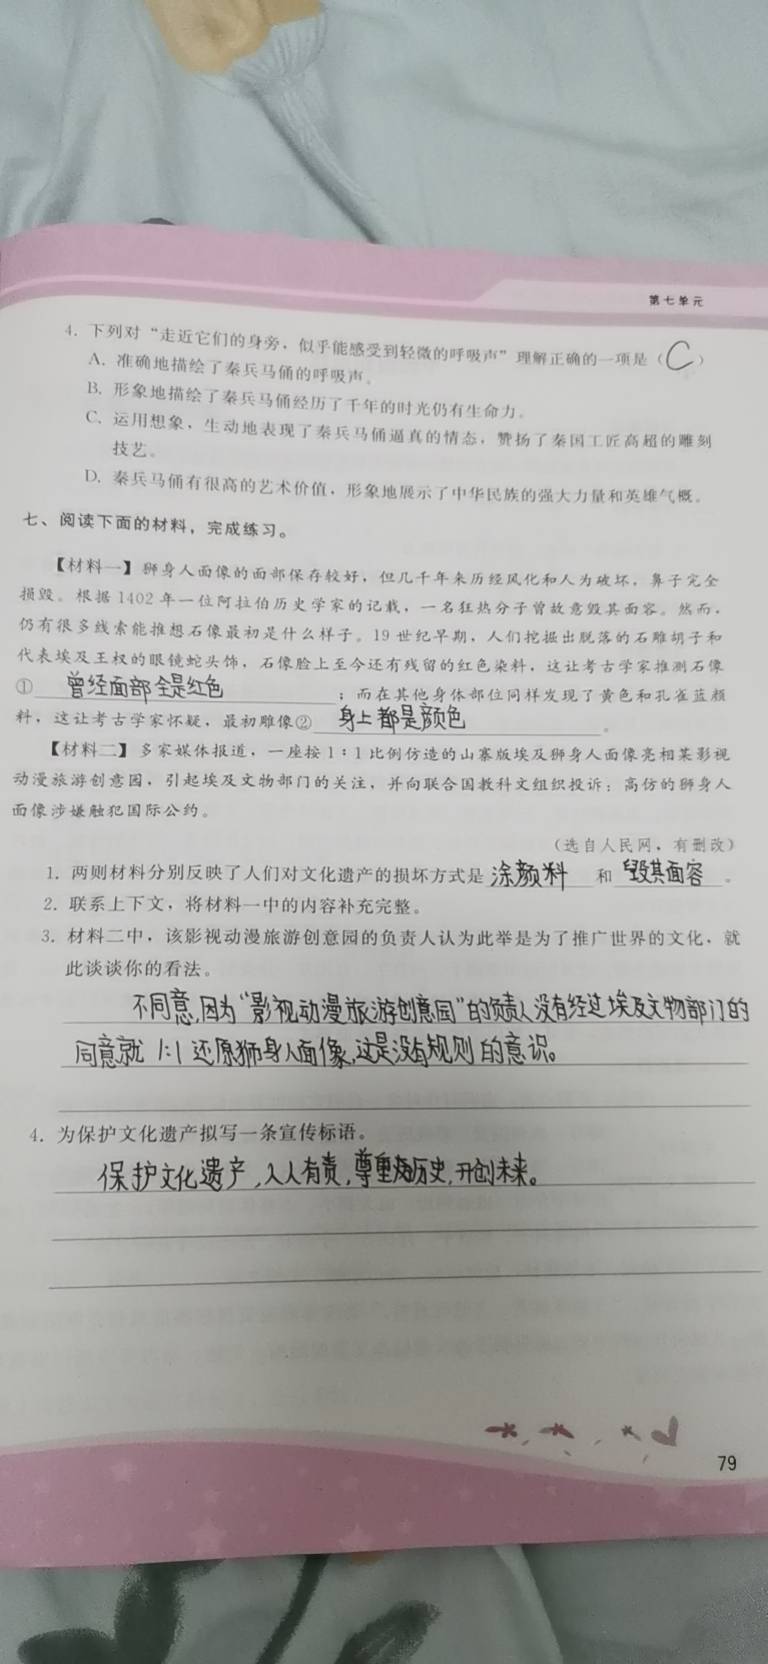 第七单元
4. 下列对“走近它们的身旁，似乎能感受到轻微的呼吸声”理解正确的一项是（C）
A. 准确地描绘了秦兵马俑的呼吸声。
B. 形象地描绘了秦兵马俑经历了千年的时光仍有生命力。
C. 运用想象，生动地表现了秦兵马俑逼真的情态，赞扬了秦国工匠高超的雕刻
技艺。
D. 秦兵马俑有很高的艺术价值，形象地展示了中华民族的强大力量和英雄气概。
七、阅读下面的材料，完成练习。
【材料一】狮身人面像的面部保存较好，但几千年来历经风化和人为破坏，鼻子完全
损毁。根据1402年一位阿拉伯历史学家的记载，一名狂热分子曾故意毁其面容。然而，
仍有很多线索能推想石像最初是什么样子。19世纪早期，人们挖掘出脱落的石雕胡子和
代表埃及王权的眼镜蛇头饰，石像脸上至今还有残留的红色染料，这让考古学家推测石像
①曾经面部全是红色；而在其他身体部位同样发现了黄色和孔雀蓝颜
料，这让考古学家怀疑，最初雕像②身上都是颜色。
【材料二】多家媒体报道，一座按1：1比例仿造的山寨版埃及狮身人面像亮相某影视
动漫旅游创意园，引起埃及文物部门的关注，并向联合国教科文组织投诉：高仿的狮身人
面像涉嫌触犯国际公约。
（选自人民网，有删改）
1. 两则材料分别反映了人们对文化遗产的损坏方式是涂颜料和毁其面容。
2. 联系上下文，将材料一中的内容补充完整。
3. 材料二中，该影视动漫旅游创意园的负责人认为此举是为了推广世界的文化，就
此谈谈你的看法。
不同意，因为“影视动漫旅游创意园”的负责人没有经过埃及文物部门的
同意就1:1还原狮身人面像，这是没有规则的意识。
4. 为保护文化遗产拟写一条宣传标语。
保护文化遗产，人人有责，尊重历史，开创未来。
79